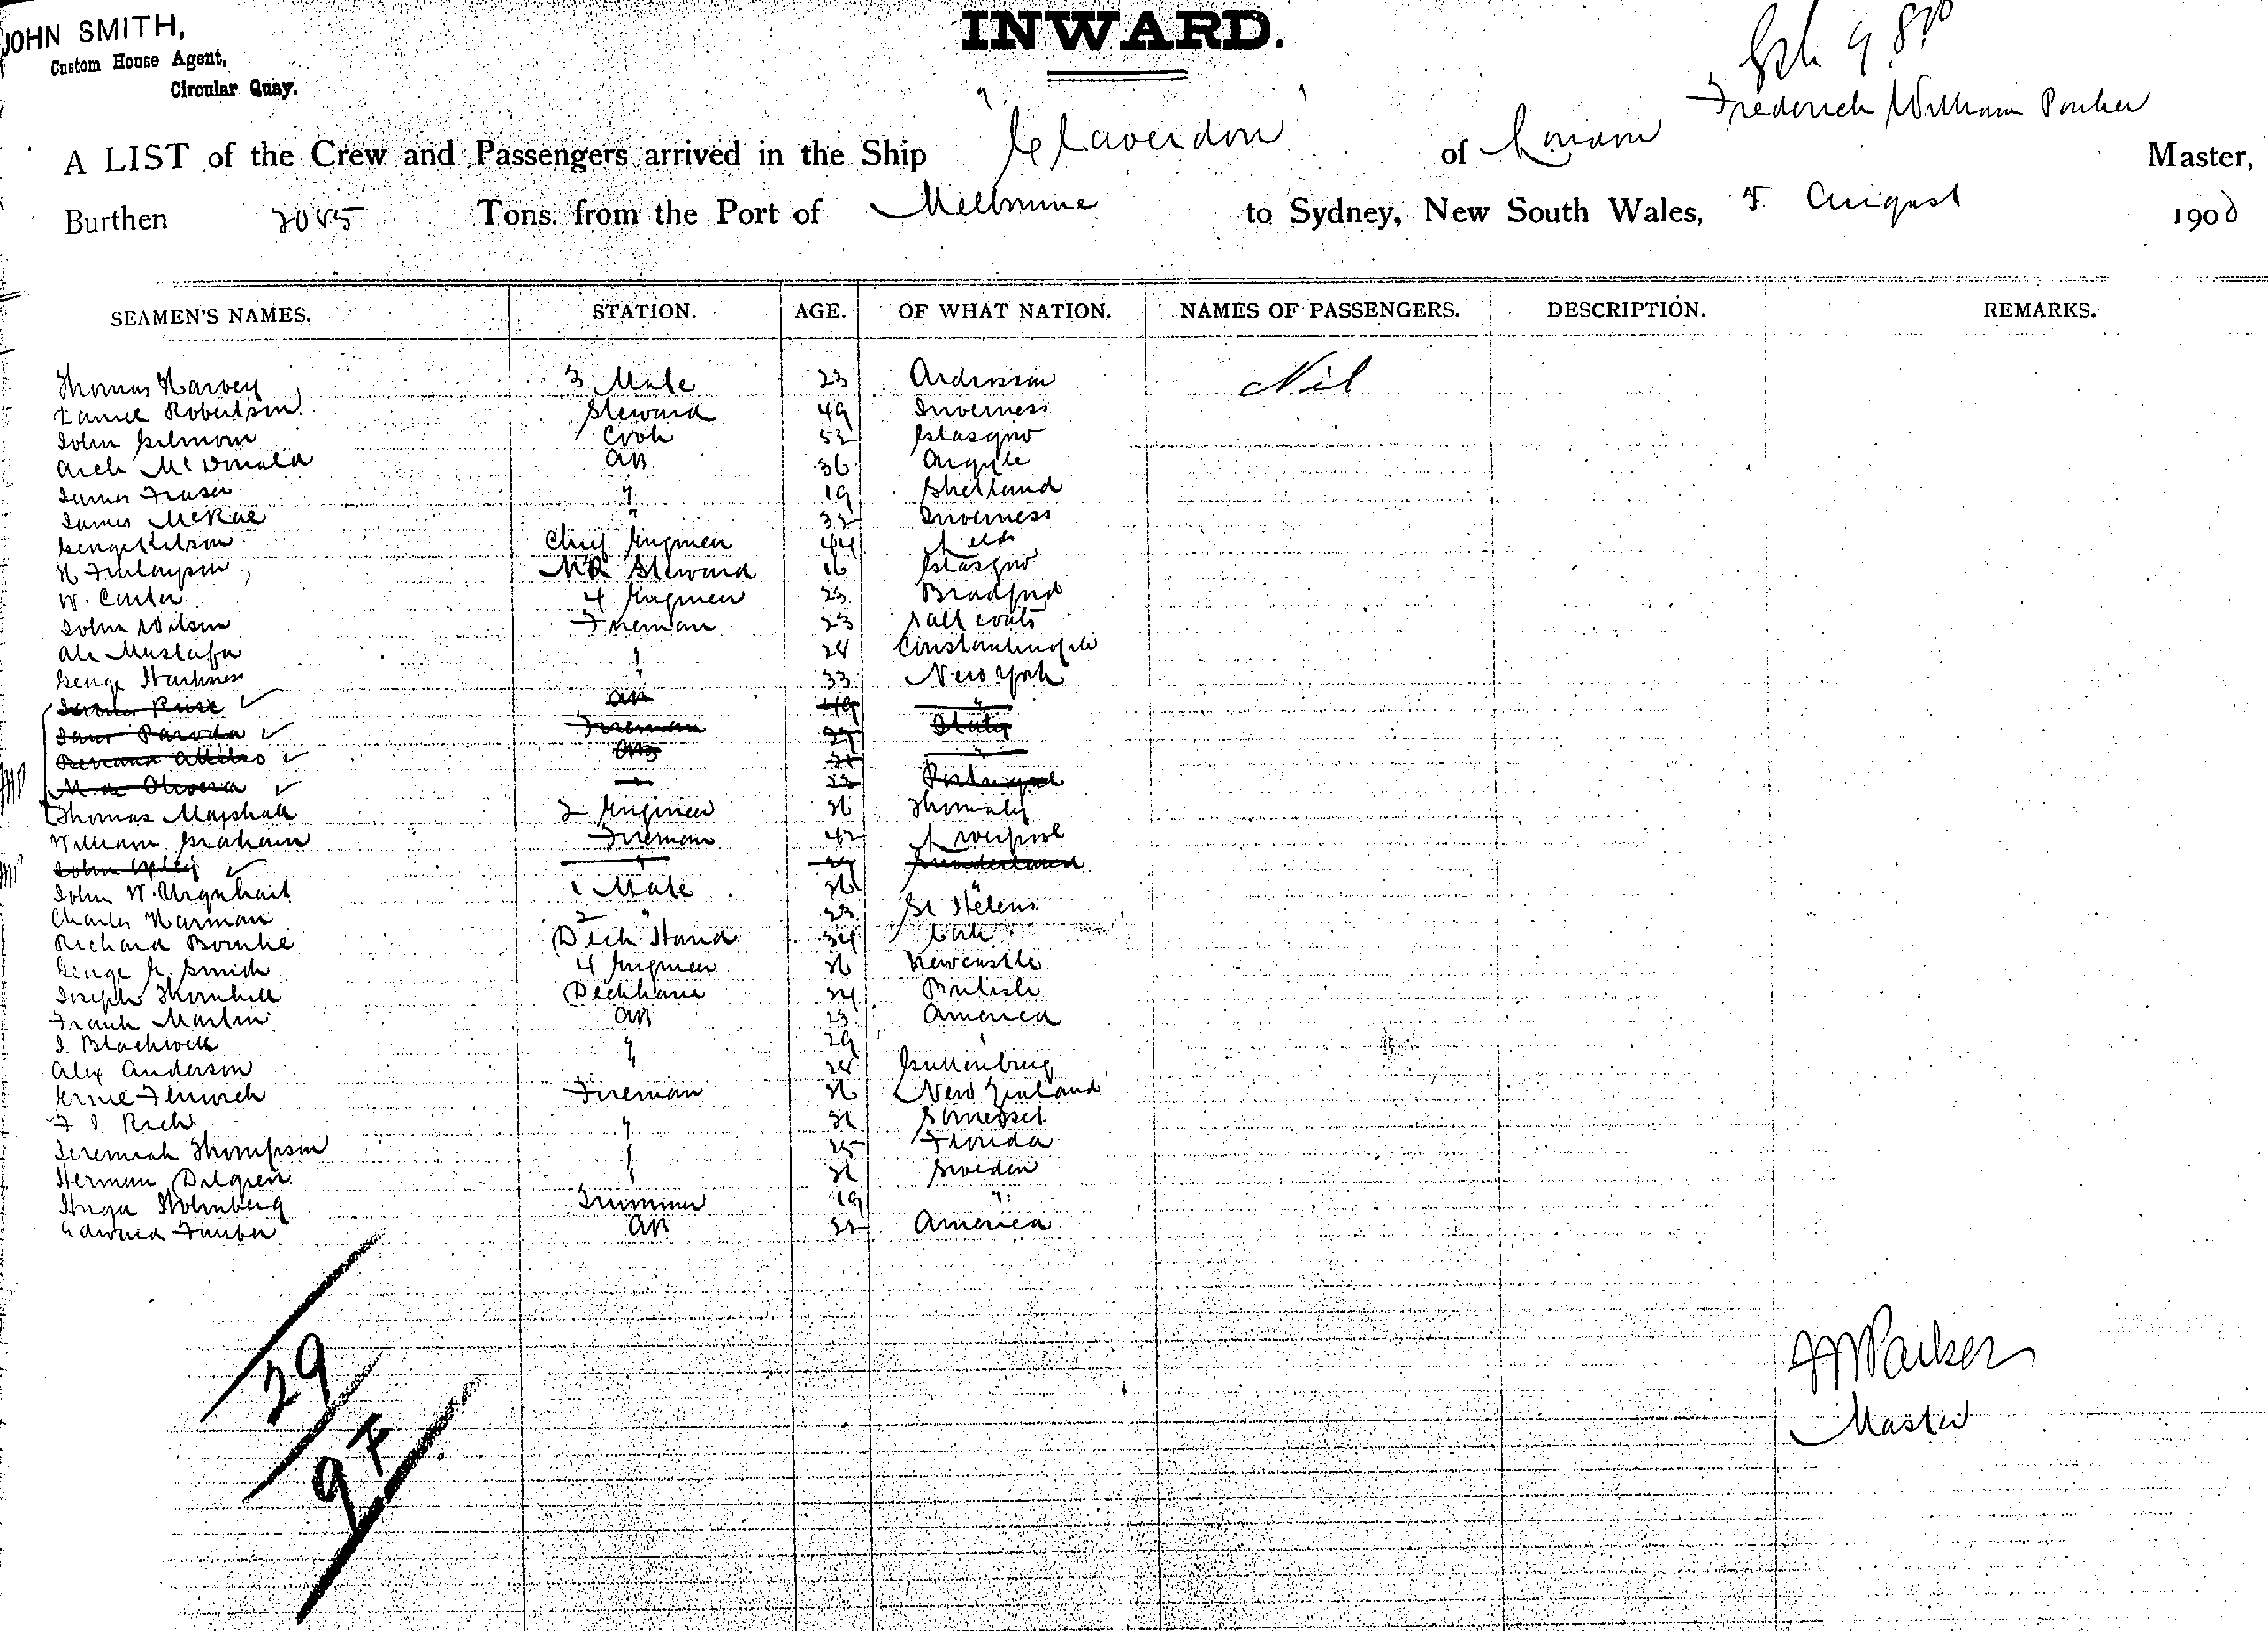 JOHN SMITH,
Custom House Agent,
Circular Quay.
INWARD.
Frederick William Parker
A LIST of the Crew and Passengers arrived in the Ship "Claverdon" of London Master,
Burthen 2045 Tons from the Port of Melbourne to Sydney, New South Wales, August 1900
SEAMEN'S NAMES. STATION. AGE. OF WHAT NATION. NAMES OF PASSENGERS. DESCRIPTION. REMARKS.
Thomas Harvey 3 Mate 23 Ardrossan Nil
Robertson Steward 49 Inverness
John Gilmour Cook 52 Glasgow
Arch McDonald AB 36 Argyle
James Fraser " 19 Shetland
James McRae " 32 Inverness
George Kitson Chief Engineer 44 Leeds
N Finlayson MR Steward 16 Glasgow
W. Carter 4 Engineer 23 Bradford
John Wilson Fireman 23 Saltcoats
Ali Mustafa " 28 Constantinople
George Harkness " 33 New York
AB 49 "
Fireman 27 Italy
AB "
M. de Olivera " 22 Portugal
Thomas Marshall 2 Engineer 36
William Graham Fireman 42 Liverpool
John " Sunderland
John W. Urquhart 1 Mate 36 "
Charles Harman 2 " 23 St Helens
Richard Bourke Deck Hand 34 Cork
George G. Smith 4 Engineer 36 Newcastle
Joseph Thornhill Deckhand 24 British
Frank Martin AB 23 America
J. Blackwell " 29 "
Alex Anderson " 28 Guttenburg
Ernie Fenwick Fireman 26 New Zealand
F J. Rich " 31 Somerset
Jeremiah Thompson " 25 Florida
Herman Dalgren " 31 Sweden
Hugo Holmberg Trimmer 19 "
Edward AB 22 America
29
97
FW Parker
Master